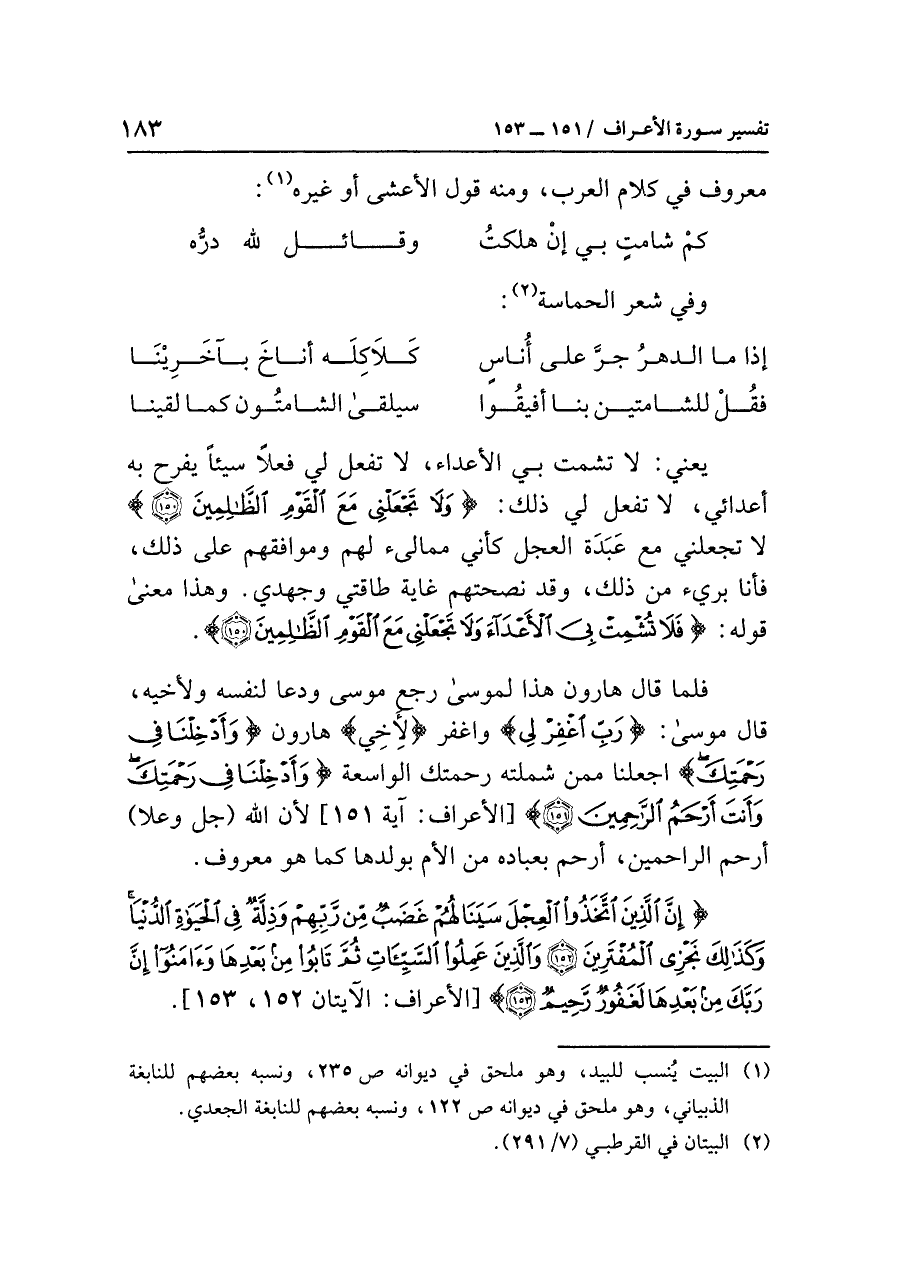 تفسير سورة الأعراف / ١٥١ ــ ١٥٣ ١٨٣
معروف في كلام العرب، ومنه قول الأعشى أو غيره(١):
كمْ شامتٍ بي إنْ هلكتُ وقائل لله درُّه
وفي شعر الحماسة(٢):
إذا ما الدهرُ جرَّ على أُناسٍ كَلَاكِلَه أناخَ بآخَرِيْنَا
فقُلْ للشامتين بنا أفيقُوا سيلقىٰ الشامتُون كما لقينا
يعني: لا تشمت بي الأعداء، لا تفعل لي فعلاً سيئاً يفرح به
أعدائي، لا تفعل لي ذلك: ﴿ وَلَا تَجْعَلْنِى مَعَ ٱلْقَوْمِ ٱلظَّٰلِمِينَ ١٥٠ ﴾
لا تجعلني مع عَبَدَة العجل كأني ممالىء لهم وموافقهم على ذلك،
فأنا بريء من ذلك، وقد نصحتهم غاية طاقتي وجهدي. وهذا معنىٰ
قوله: ﴿ فَلَا تُشْمِتْ بِىَ ٱلْأَعْدَآءَ وَلَا تَجْعَلْنِى مَعَ ٱلْقَوْمِ ٱلظَّٰلِمِينَ ١٥٠﴾.
فلما قال هارون هذا لموسىٰ رجع موسى ودعا لنفسه ولأخيه،
قال موسىٰ: ﴿ رَبِّ ٱغْفِرْ لِى﴾ واغفر ﴿لِأَخِي﴾ هارون ﴿ وَأَدْخِلْنَا فِى
رَحْمَتِكَ ۖ﴾ اجعلنا ممن شملته رحمتك الواسعة ﴿ وَأَدْخِلْنَا فِى رَحْمَتِكَ ۖ
وَأَنتَ أَرْحَمُ ٱلرَّٰحِمِينَ ١٥١﴾ [الأعراف: آية ١٥١] لأن الله (جل وعلا)
أرحم الراحمين، أرحم بعباده من الأم بولدها كما هو معروف.
﴿ إِنَّ ٱلَّذِينَ ٱتَّخَذُوا۟ ٱلْعِجْلَ سَيَنَالُهُمْ غَضَبٌ مِّن رَّبِّهِمْ وَذِلَّةٌ فِى ٱلْحَيَوٰةِ ٱلدُّنْيَا ۚ
وَكَذَٰلِكَ نَجْزِى ٱلْمُفْتَرِينَ ١٥٢ وَٱلَّذِينَ عَمِلُوا۟ ٱلسَّيِّـَٔاتِ ثُمَّ تَابُوا۟ مِنۢ بَعْدِهَا وَءَامَنُوٓا۟ إِنَّ
رَبَّكَ مِنۢ بَعْدِهَا لَغَفُورٌ رَّحِيمٌ ١٥٣﴾ [الأعراف: الآيتان ١٥٢، ١٥٣].
(١) البيت يُنسب للبيد، وهو ملحق في ديوانه ص ٢٣٥، ونسبه بعضهم للنابغة
الذبياني، وهو ملحق في ديوانه ص ١٢٢، ونسبه بعضهم للنابغة الجعدي.
(٢) البيتان في القرطبي (٧/ ٢٩١).